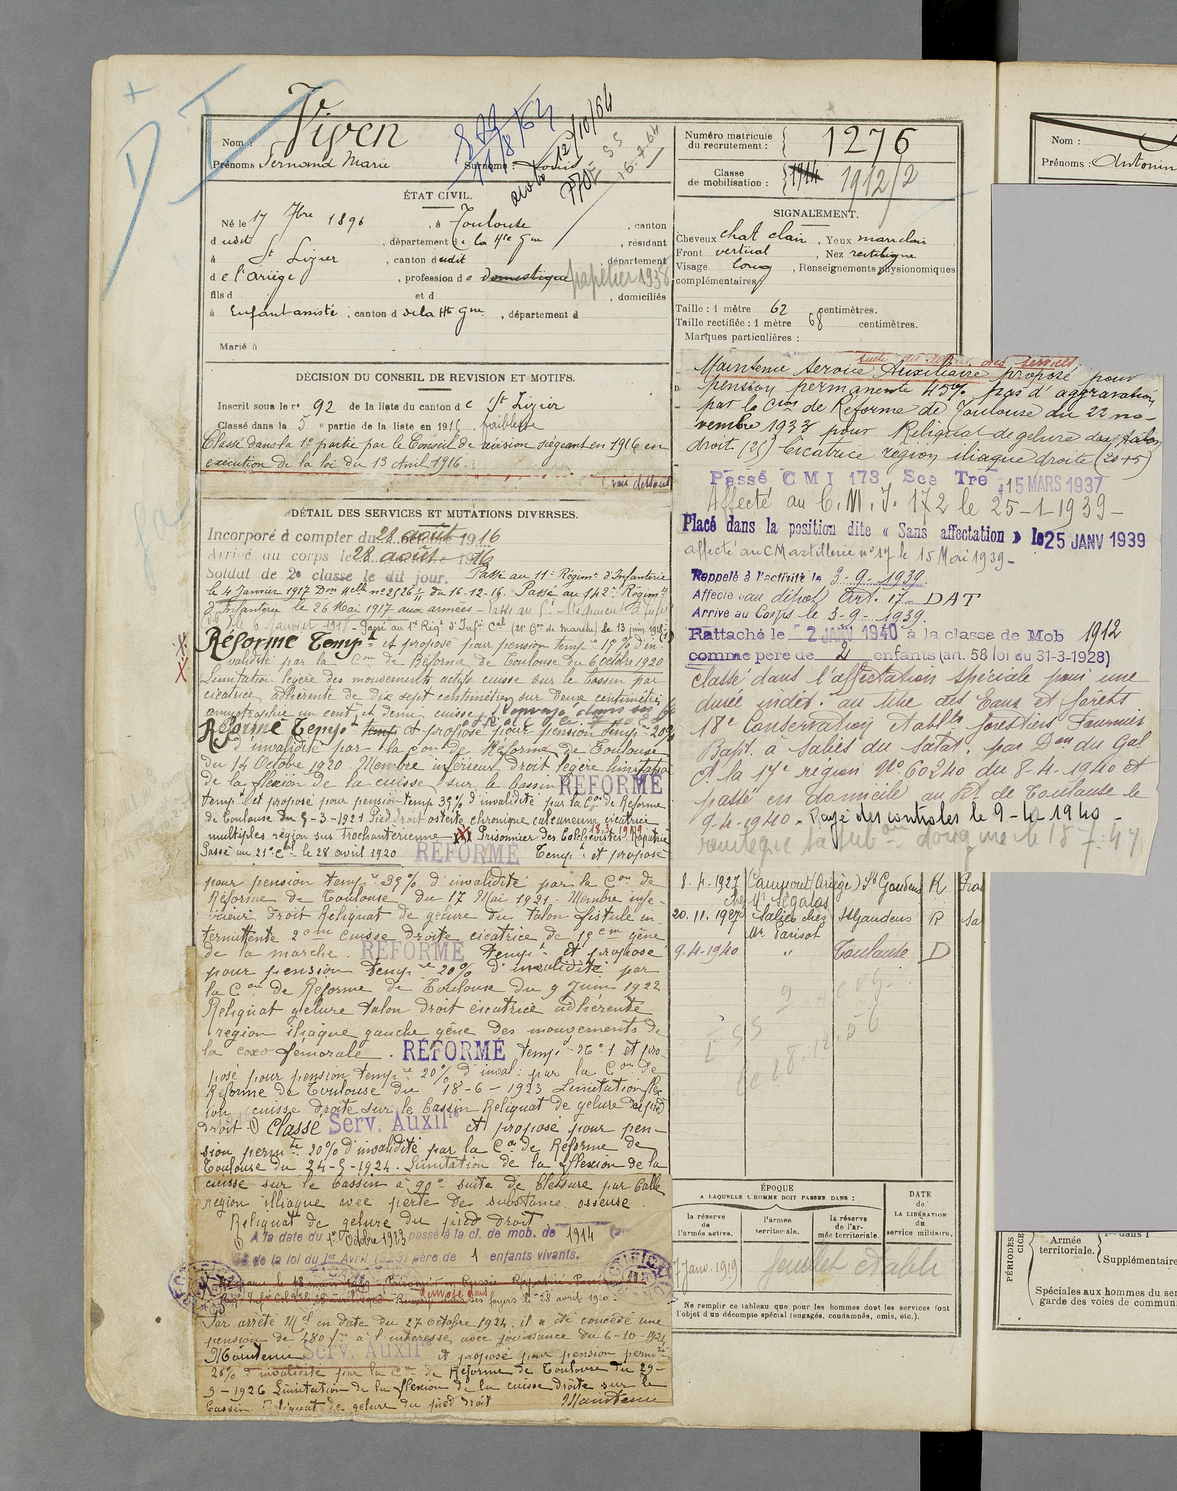 Viven
Nom :
Prénoms : Fernand Marie
Surnoms : Louis
829
18/8/64
12/10/64
SS
16.7.64
ÉTAT CIVIL.
Né le 17 7bre 1896 , à Toulouse , canton
d udit , département de la Hte Gne , résidant
à St Lizier , canton dudit , département
d e l'Ariège , profession de domestique papetier 1938
fils d et d , domiciliés
à Enfant assisté , canton d de la Hte Gne , département d
Marié à
DÉCISION DU CONSEIL DE REVISION ET MOTIFS.
Inscrit sous le n° 92 de la liste du canton de St Lizier
Classé dans la 5e partie de la liste en 1915 faiblesse
Classé dans la 1e partie par le Conseil de révision siégeant en 1916 en
exécution de la loi du 13 Avril 1916.
(voir dessous
DÉTAIL DES SERVICES ET MUTATIONS DIVERSES.
Incorporé à compter du 28 août 1916
Arrivé au corps le 28 août 1916
Soldat de 2e classe le dit jour. Passé au 11e Régimt d'Infanterie
le 4 Janvier 1917 Don Melle n° 2526 du 16-12-16. Passé au 142e Régimt
d'Infanterie le 26 Mai 1917 aux armées -
le 6 Janvier 1918 - Passé au 1er Régt d'Infie Cale (21e Bon de marche) le 13 juin 1918
Réformé Tempt et proposé pour pension tempre 15% d'in-
validité par la Con de Réforme de Toulouse du 6 Octobre 1920
Limitation légère des mouvements actifs cuisse sur le bassin par
cicatrice adhérente de dix sept centimètres sur deux centimètres
amyotrophie un cent. et demi cuisse
Réformé Tempt et proposé pour pension tempre 20%
d'invalidité par la Con de Réforme de Toulouse
du 14 Octobre 1920. Membre inférieur droit légère limitation
de la flexion de la cuisse sur le bassin RÉFORMÉ
tempt et proposé pour pension temp 35% d'invalidité par la Con de Réforme
de Toulouse du 5-3-1921 Pied droit ostéite chronique calcanéenne cicatrice
multiples région sus trochantérienne - Prisonnier des Bolchevistes 18.3.1919 Rapatrié
Passé au 21e Cal le 28 avril 1920 RÉFORMÉ Tempt et proposé
pour pension tempre 35% d'invalidité par la Con de
Réforme de Toulouse du 17 Mai 1921. Membre infé-
rieur droit Reliquat de gelure du talon fistule in-
termittente 2e du Cuisse droite cicatrice de 18 cm gêne
de la marche. RÉFORMÉ tempt et proposé
pour pension tempre 20% d'invalidité par
la Con de Réforme de Toulouse du 9 Juin 1922
Reliquat gelure talon droit cicatrice adhérente
région iliaque gauche gêne des mouvements de
la coxo fémorale. RÉFORMÉ tempt n° 1 et pro-
posé pour pension tempre 20% d'inval: par la Con de
Réforme de Toulouse du 18-6-1923 Limitation flex
ion cuisse droite sur le bassin Reliquat de gelure du pied
droit Classé Serv. Auxilre et proposé pour pen-
sion permte 20% d'invalidité par la Con de Réforme de
Toulouse du 24-5-1924. Limitation de la flexion de la
cuisse sur le bassin à 90° suite de blessure par balle
région illiaque avec perte de substance osseuse.
Reliquat de gelure du pied droit
A la date du 1er Octobre 1923 passé à la cl. de mob. de 1914
de la loi du 1er Avril 1923) père de 1 enfants vivants.
ses foyers le 28 avril 1920.
Par arrêté Mel en date du 27 Octobre 1924, il a été concédé une
pension de 480 frs à l'intéressé avec jouissance du 6-10-1921
Maintenu Serv. Auxilre et proposé pour pension permte
20% d'invalidité par la Con de Réforme de Toulouse du 29-
9-1926 Limitation de la flexion de la cuisse droite sur le
bassin Reliquat de gelure du pied droit Maintenu
Numéro matricule
du recrutement : 1276
Classe
de mobilisation : 1914 1912/2
SIGNALEMENT.
Cheveux chat clair , Yeux mar. clair
Front vertical , Nez rectiligne
Visage long , Renseignements physionomiques
complémentaires :
Taille : 1 mètre 62 centimètres.
Taille rectifiée : 1 mètre 68 centimètres.
Marques particulières :
suite du détail des services
Maintenu Service Auxiliaire proposé pour
pension permanente 45% pas d'aggravation
par la Con de Réforme de Toulouse du 22 no-
vembre 1933 pour Reliquat de gelure du talon
droit (25) Cicatrice région iliaque droite (20+5)
Passé C M I 173 Sce Tre 15 MARS 1937
Affecté au C.M.I. 172 le 25-1-1939-
Placé dans la position dite « Sans affectation » le 25 JANV 1939
affecté au CM artillerie n° 17 le 15 Mai 1939-
Rappelé à l'activité le 3-9-1939
Affecté au dépôt Art. 17 DAT
Arrivé au Corps le 3-9-1939.
Rattaché le 2 JANV 1940 à la classe de Mob 1912
comme père de 2 enfants (art. 58 loi du 31-3-1928)
classé dans l'affectation spéciale pour une
durée indét. au titre des Eaux et forêts
18e Conservation Etablts forestiers Fournier
Bapt. à Salies du Salat, par Don du Gal
Ct la 17e région N° 60240 du 8-4-1940 et
passé en domicile au Bt de Toulouse le
9-4-1940. Rayé des contrôles le 9-4-1940-
8.4.1927 Campiout (Ariège) St Gaudens R
chez Mr Ségalas
20.11.1927 Salies chez St Gaudens R
Mr Parisot
9-4-1940 " Toulouse D
SS
28.12.56
ÉPOQUE
A LAQUELLE L'HOMME DOIT PASSER DANS :
DATE
de
LA LIBÉRATION
du
service militaire.
la réserve
de
l'armée active.
l'armée
territoriale.
la réserve
de l'ar-
mée territoriale.
7 Janv. 1919
Ne remplir ce tableau que pour les hommes dont les services font
l'objet d'un décompte spécial (engagés, condamnés, omis, etc.).
Nom :
Prénoms : Antonin
PÉRIODES
Armée
territoriale.
dans l
Supplémentaire
Spéciales aux hommes du ser
garde des voies de commun